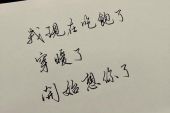 我现在吃饱了
穿暖了
开始想你了